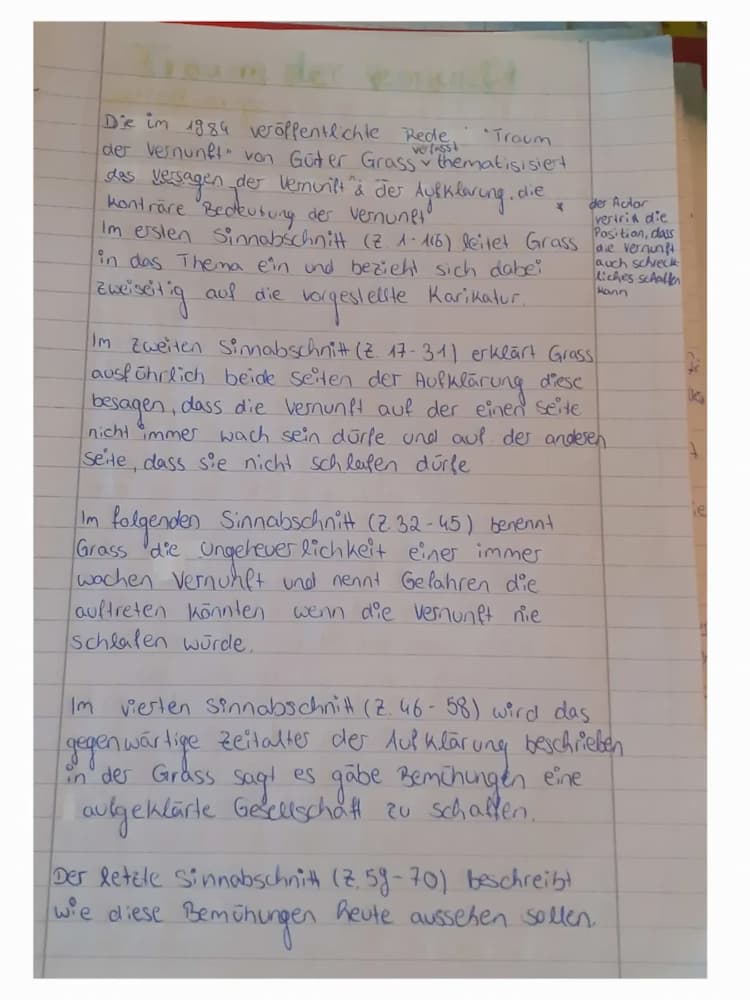 Die im 1984 veröffentlichte Rede "Traum
der Vernunft" von Güter Grass verfasst thematisisiert
das versagen der Vernunft & der Aufklärung. die
konträre Bedeutung der Vernunft *
Im ersten Sinnabschnitt (Z 1-16) leitet Grass
in das Thema ein und bezieht sich dabei
zweiseitig auf die vorgestellte Karikatur.
* der Autor
vertritt die
Position, dass
die Vernunft
auch schreck-
liches schaffen
kann
Im zweiten Sinnabschnitt (Z. 17-31) erklärt Grass
ausführlich beide Seiten der Aufklärung diese
besagen, dass die Vernunft auf der einen Seite
nicht immer wach sein dürfe und auf der anderen
Seite, dass sie nicht schlafen dürfe
Im folgenden Sinnabschnitt (Z.32-45) benennt
Grass die Ungeheuerlichkeit einer immer
wachen Vernunft und nennt Gefahren die
auftreten könnten wenn die Vernunft nie
schlafen würde.
Im vierten Sinnabschnitt (Z. 46-58) wird das
gegenwärtige Zeitalter der Aufklärung beschrieben
in der Grass sagt es gäbe Bemühungen eine
aufgeklärte Gesellschaft zu schaffen.
Der letzte Sinnabschnitt (Z.59-70) beschreibt
wie diese Bemühungen Heute aussehen sollen.